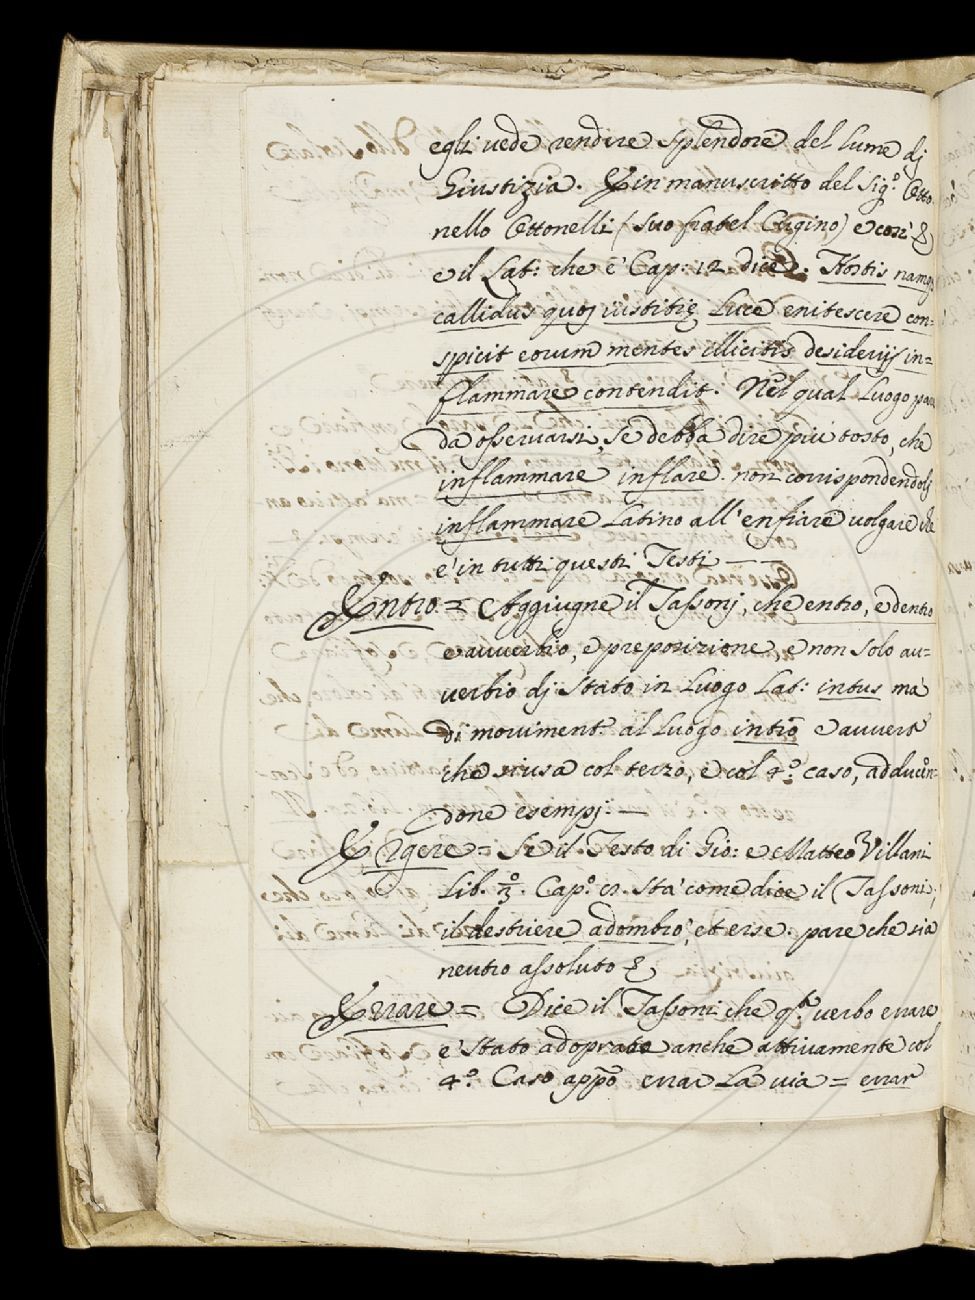 egli vede rendere splendore del lume dj
Giustizia. Et in manuscritto del Sig.º Otto
nello Ottonelli (suo fratel Cugino) e cosi' &
e il Lat: che e' Cap: 12 dice. Hostis namq3
callidus quos iustitię Luce enitescere con-
spicit eorum mentes illicitis desiderijs in-
flammare contendit. Nel qual Luogo pare
da osservarsi, se debba dire più tosto, che
inflammare inflare. non corrispondendolj
inflammare Latino all'enfiare volgare che
e' in tutti questi Testi
Entro = Aggiugne il Tassonj, che entro, e dentro
e avverbio, e preposizione, e non solo au=
verbio dj stato in Luogo Lat: intus ma
di moviment: al Luogo intro e avvert
che si usa col terzo, e col 4.º caso, adducen-
done esempj: —
Ergere = Se il Testo di Gio: e Matteo Villani
Lib. º 3. Cap.º sta' come dice il Tassoni,
il destriere adombrò, et erse. pare che sia
neutro assoluto &
Errare = Dice il Tassoni che q.to verbo errare
e' stato adoprato anche attivamente col
4.º Caso app̄o errar La via = errar